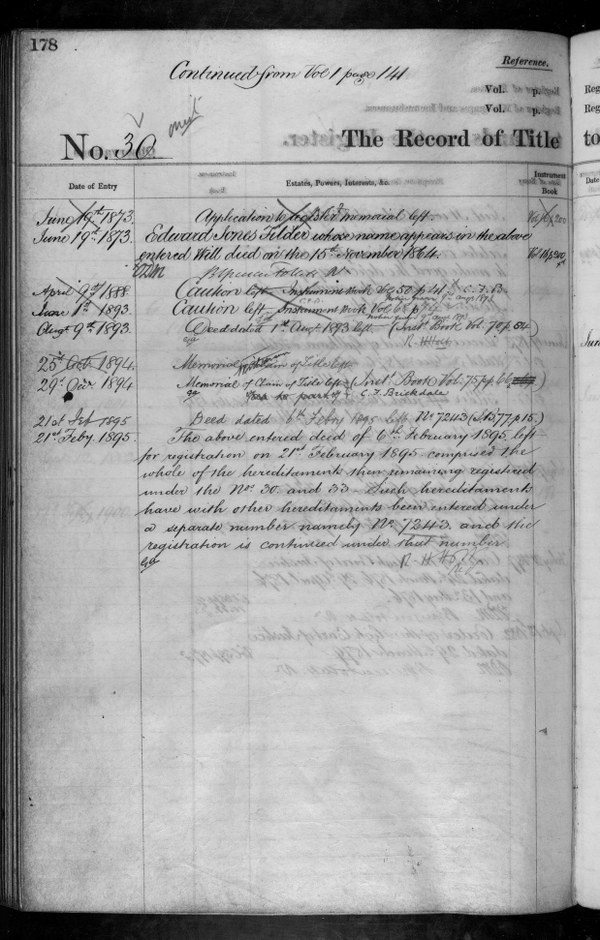 178
Continued from Vol 1 page 141
Reference.
Vol. p.
Vol. p.
No. 30
The Record of Title
Date of Entry
Estates, Powers, Interests, &c.
Instrument Book
June 19th 1873. Application to register memorial left. Vol 14 p 200
June 19th 1873. Edward Jones Tilder whose name appears in the above Vol 14 p 200
entered Will died on the 15th November 1864.
Spencer Follett R
April 9th 1888 Caution left Instrument Book Vol 50 p 41 C.F.B.
June 1st 1893. Caution left Instrument Book Vol 68 p
Augt 9th 1893. Deed dated 1st Augt 1893 left (Inst Book Vol. 70 p 54)
R. H. Holt
25th Oct. 1894. Memorial of Claim of Title left
29th Oct 1894 Memorial of Claim of Title left (Inst Book Vol. 75 pp 66
as to part of C. F. Brickdale
21st Feb 1895 Deed dated 6th Feby 1895 left No 7243 (IB 77 p 15.)
21st Feby 1895. The above entered deed of 6th February 1895 left
for registration on 21st February 1895 comprised the
whole of the hereditaments then remaining registered
under the Nos. 30 and 33. Such hereditaments
have with other hereditaments been entered under
a separate number namely No 7243 and the
registration is continued under that number
R. H. Holt
Reg
Reg
to
Date